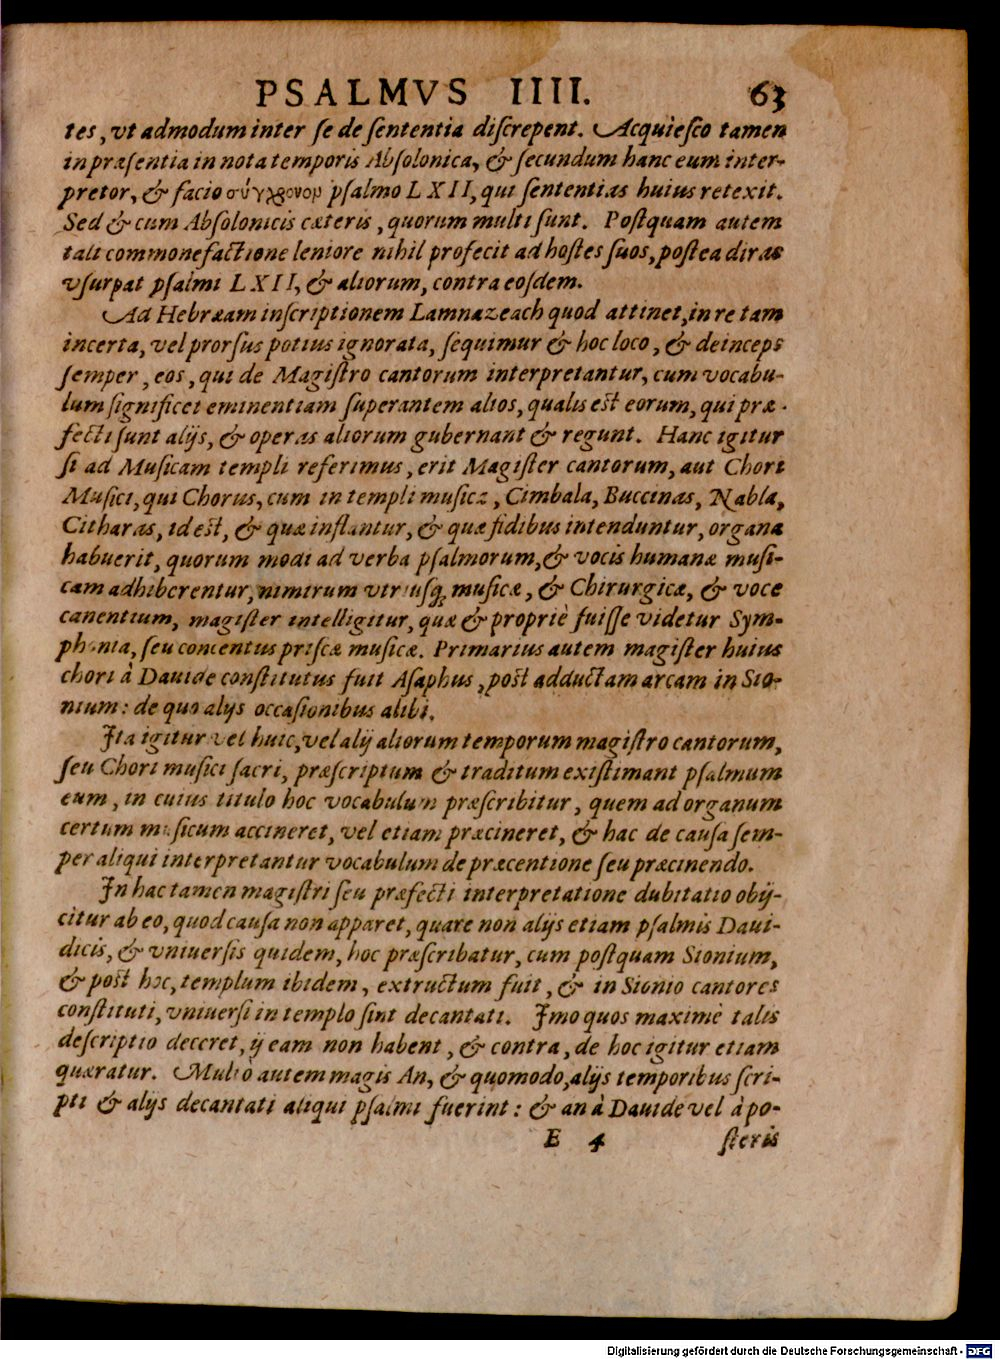 PSALMVS IIII. 63
tes, vt admodum inter se de sententia discrepent. Acquiesco tamen
in præsentia in nota temporis Absolonica, & secundum hanc eum inter-
pretor, & facio σύγχρονον psalmo LXII, qui sententias huius retexit.
Sed & cum Absolonicis cæteris, quorum multi sunt. Postquam autem
tali commonefactione leniore nihil profecit ad hostes suos, postea diras
vsurpat psalmi LXII, & aliorum, contra eosdem.
Ad Hebræam inscriptionem Lamnazeach quod attinet, in re tam
incerta, vel prorsus potius ignorata, sequimur & hoc loco, & deinceps
semper, eos, qui de Magistro cantorum interpretantur, cum vocabu-
lum significet eminentiam superantem alios, qualis est eorum, qui præ-
fecti sunt alijs, & operas aliorum gubernant & regunt. Hanc igitur
si ad Musicam templi referimus, erit Magister cantorum, aut Chori
Musici, qui Chorus, cum in templi musica, Cimbala, Buccinas, Nabla,
Citharas, id est, & quæ inflantur, & quæ fidibus intenduntur, organa
habuerit, quorum modi ad verba psalmorum, & vocis humanæ musi-
cam adhiberentur, nimirum vtriusq; musicæ, & Chirurgicæ, & voce
canentium, magister intelligitur, quæ & propriè fuisse videtur Sym-
phonia, seu concentus priscæ musicæ. Primarius autem magister huius
chori à Dauide constitutus fuit Asaphus, post adductam arcam in Sio-
nium: de quo alys occasionibus alibi.
Ita igitur vel huic, vel alij aliorum temporum magistro cantorum,
seu Chori musici sacri, præscriptum & traditum existimant psalmum
eum, in cuius titulo hoc vocabulum præscribitur, quem ad organum
certum musicum accineret, vel etiam præcineret, & hac de causa sem-
per aliqui interpretantur vocabulum de præcentione seu præcinendo.
In hac tamen magistri seu præfecti interpretatione dubitatio obij-
citur ab eo, quod causa non apparet, quare non alijs etiam psalmis Daui-
dicis, & vniuersis quidem, hoc præscribatur, cum postquam Sionium,
& post hoc, templum ibidem, extructum fuit, & in Sionio cantores
constituti, vniuersi in templo sint decantati. Imo quos maximè talis
descriptio deceret, ij eam non habent, & contra, de hoc igitur etiam
quæratur. Multò autem magis An, & quomodo, alijs temporibus scri-
pti & alijs decantati aliqui psalmi fuerint: & an à Dauide vel à po-
E 4 steris
Digitalisierung gefördert durch die Deutsche Forschungsgemeinschaft - DFG